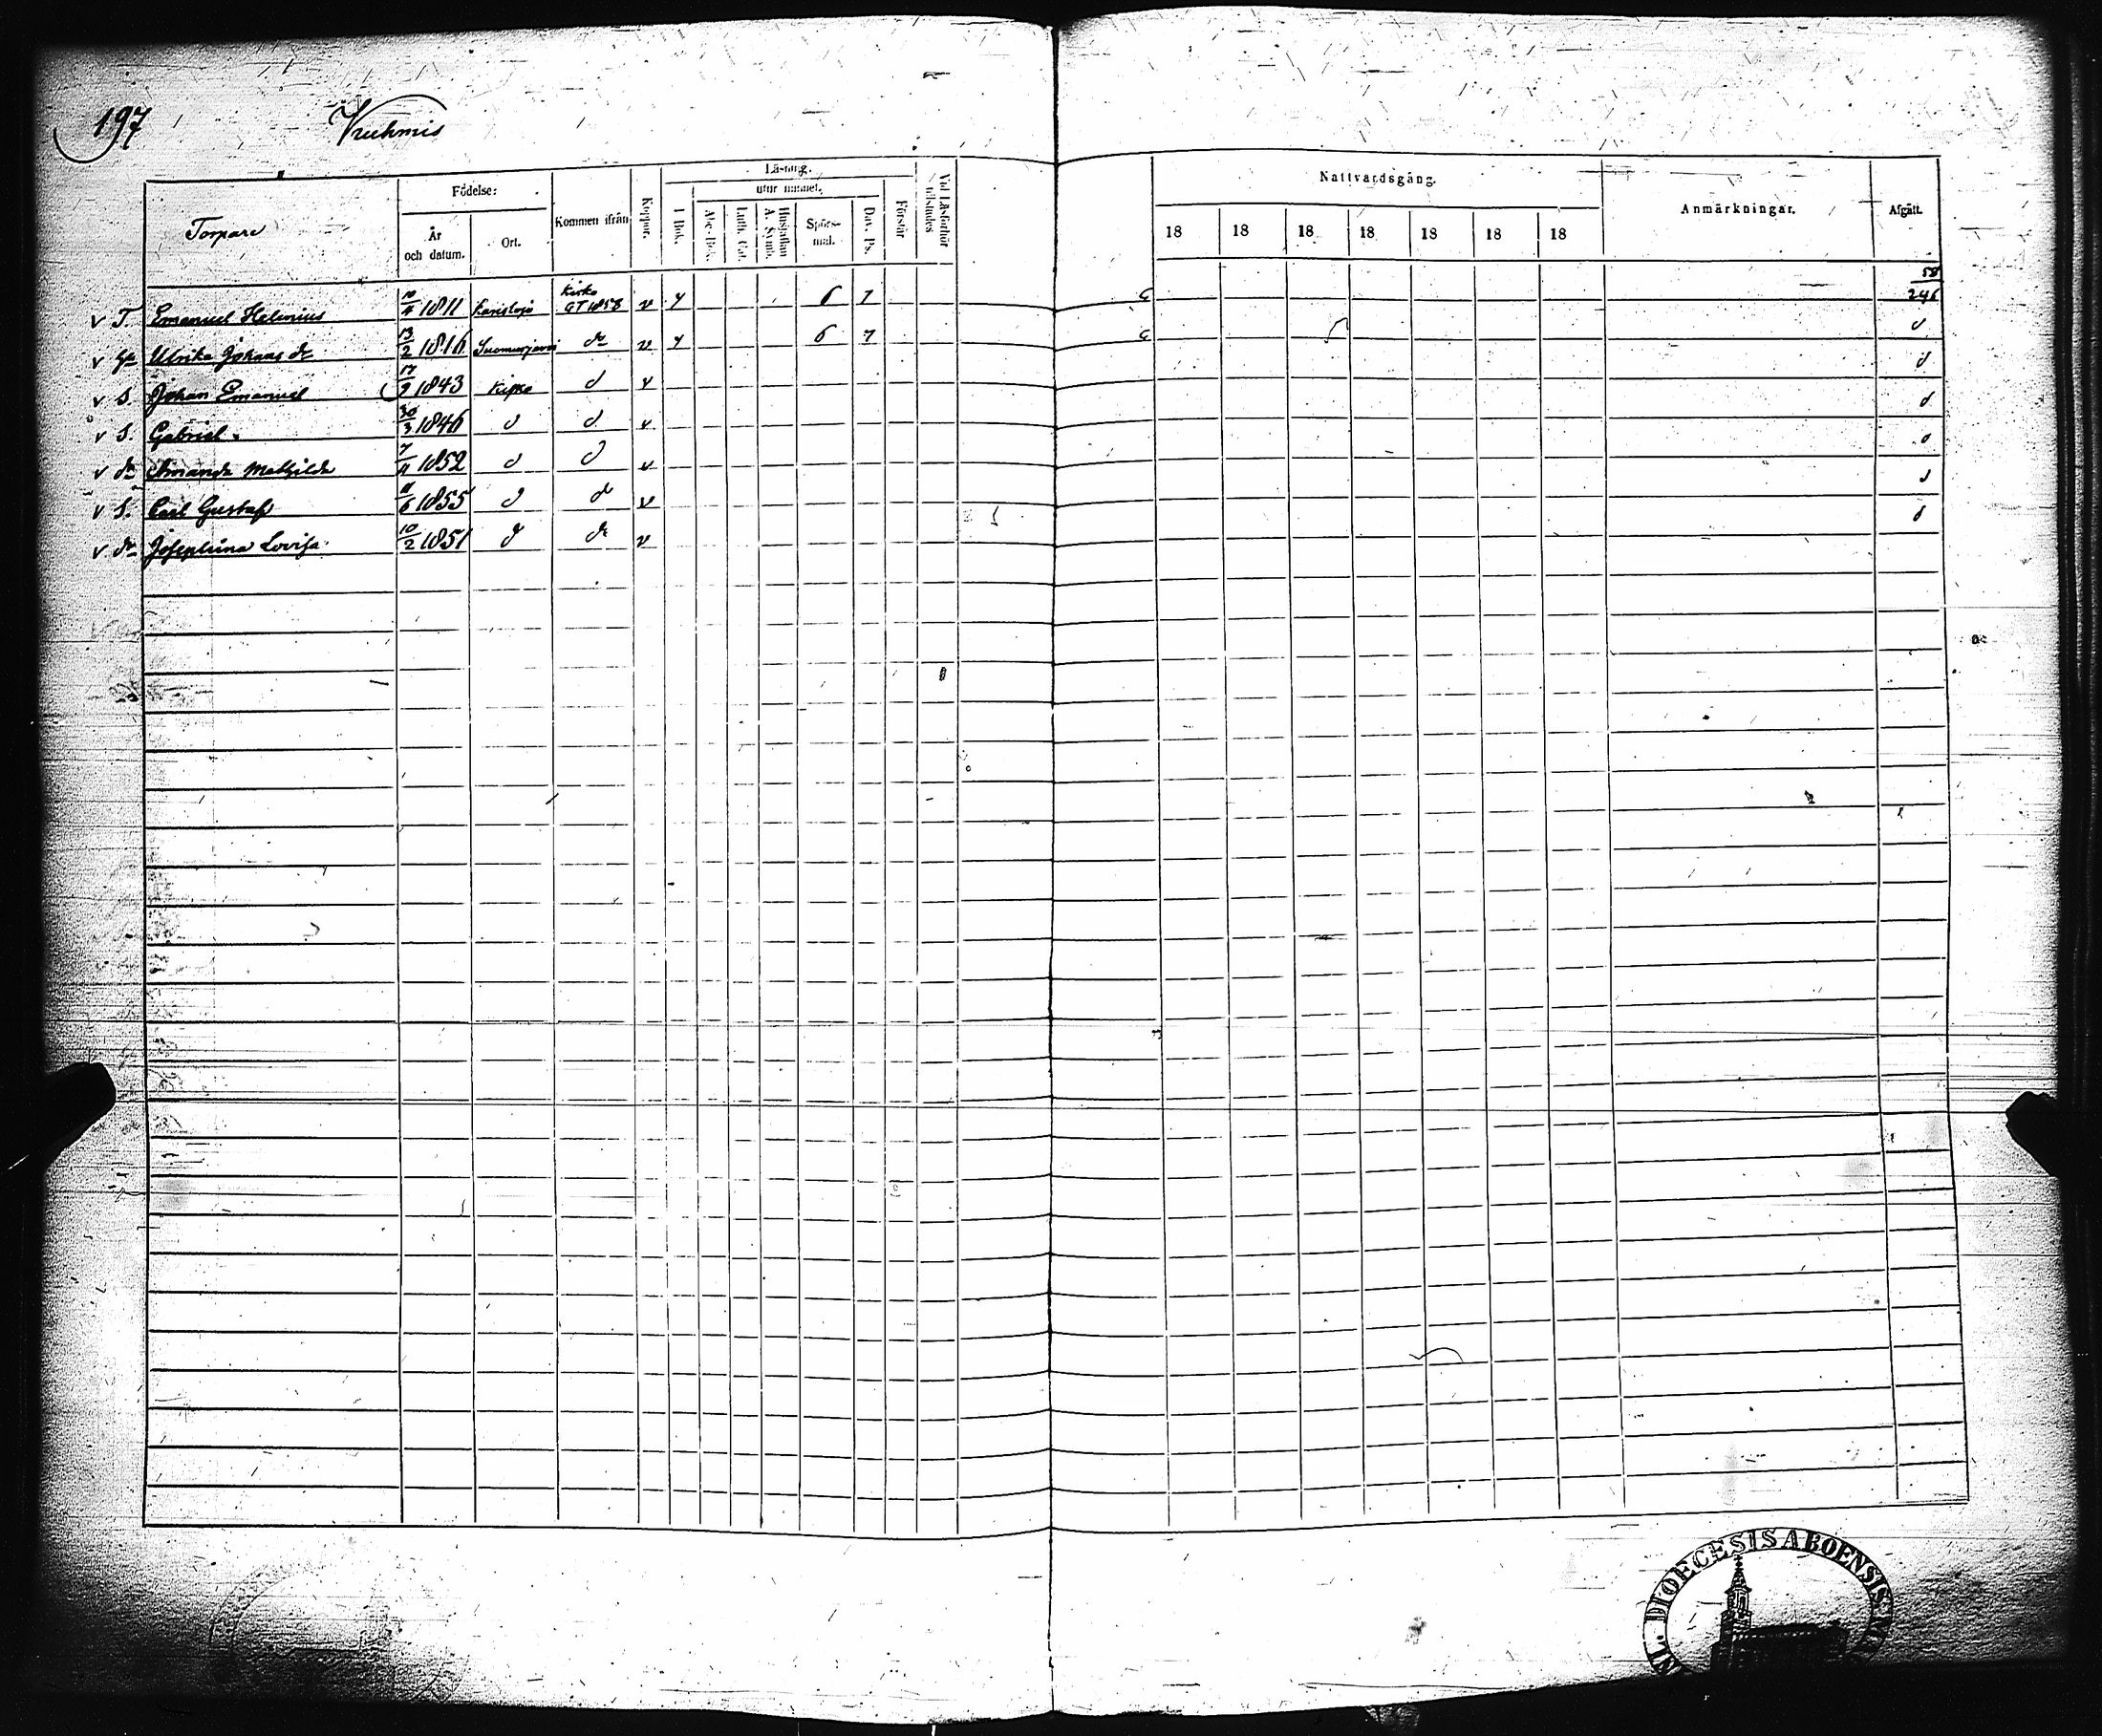 197
Födelse:
Läsning.
utur minnet.
Nattvardsgång.
Anmärkningar.
Afgått.
Torpare
År och datum.
Ort.
Kommen ifrån
Koppor.
I Bok.
Abc-Bok.
Luth. Cat.
Hustaflan A. Symb.
Spörsmål.
Dav. Ps.
Förstår
Vid Läsförhör tillstädes
18 18 18 18 18 18 18
v T. Emanuel Helenius 10/4 1811 Karislojo Kisko GT 1858 v y 6 7 58/246
v Hu Ulrika Johans dr 13/2 1816 Suomusjärvi do v y 6 7 d
v S. Johan Emanuel 17/9 1843 Kisko d v d
v S. Gabriel 30/3 1846 d d v d
v dr Amanda Mathilda 7/11 1852 d d v d
v S. Carl Gustaf 11/6 1855 d d v d
v dr Josephina Lovisa 10/2 1851 d do v d
DIOECESIS ABOENSIS